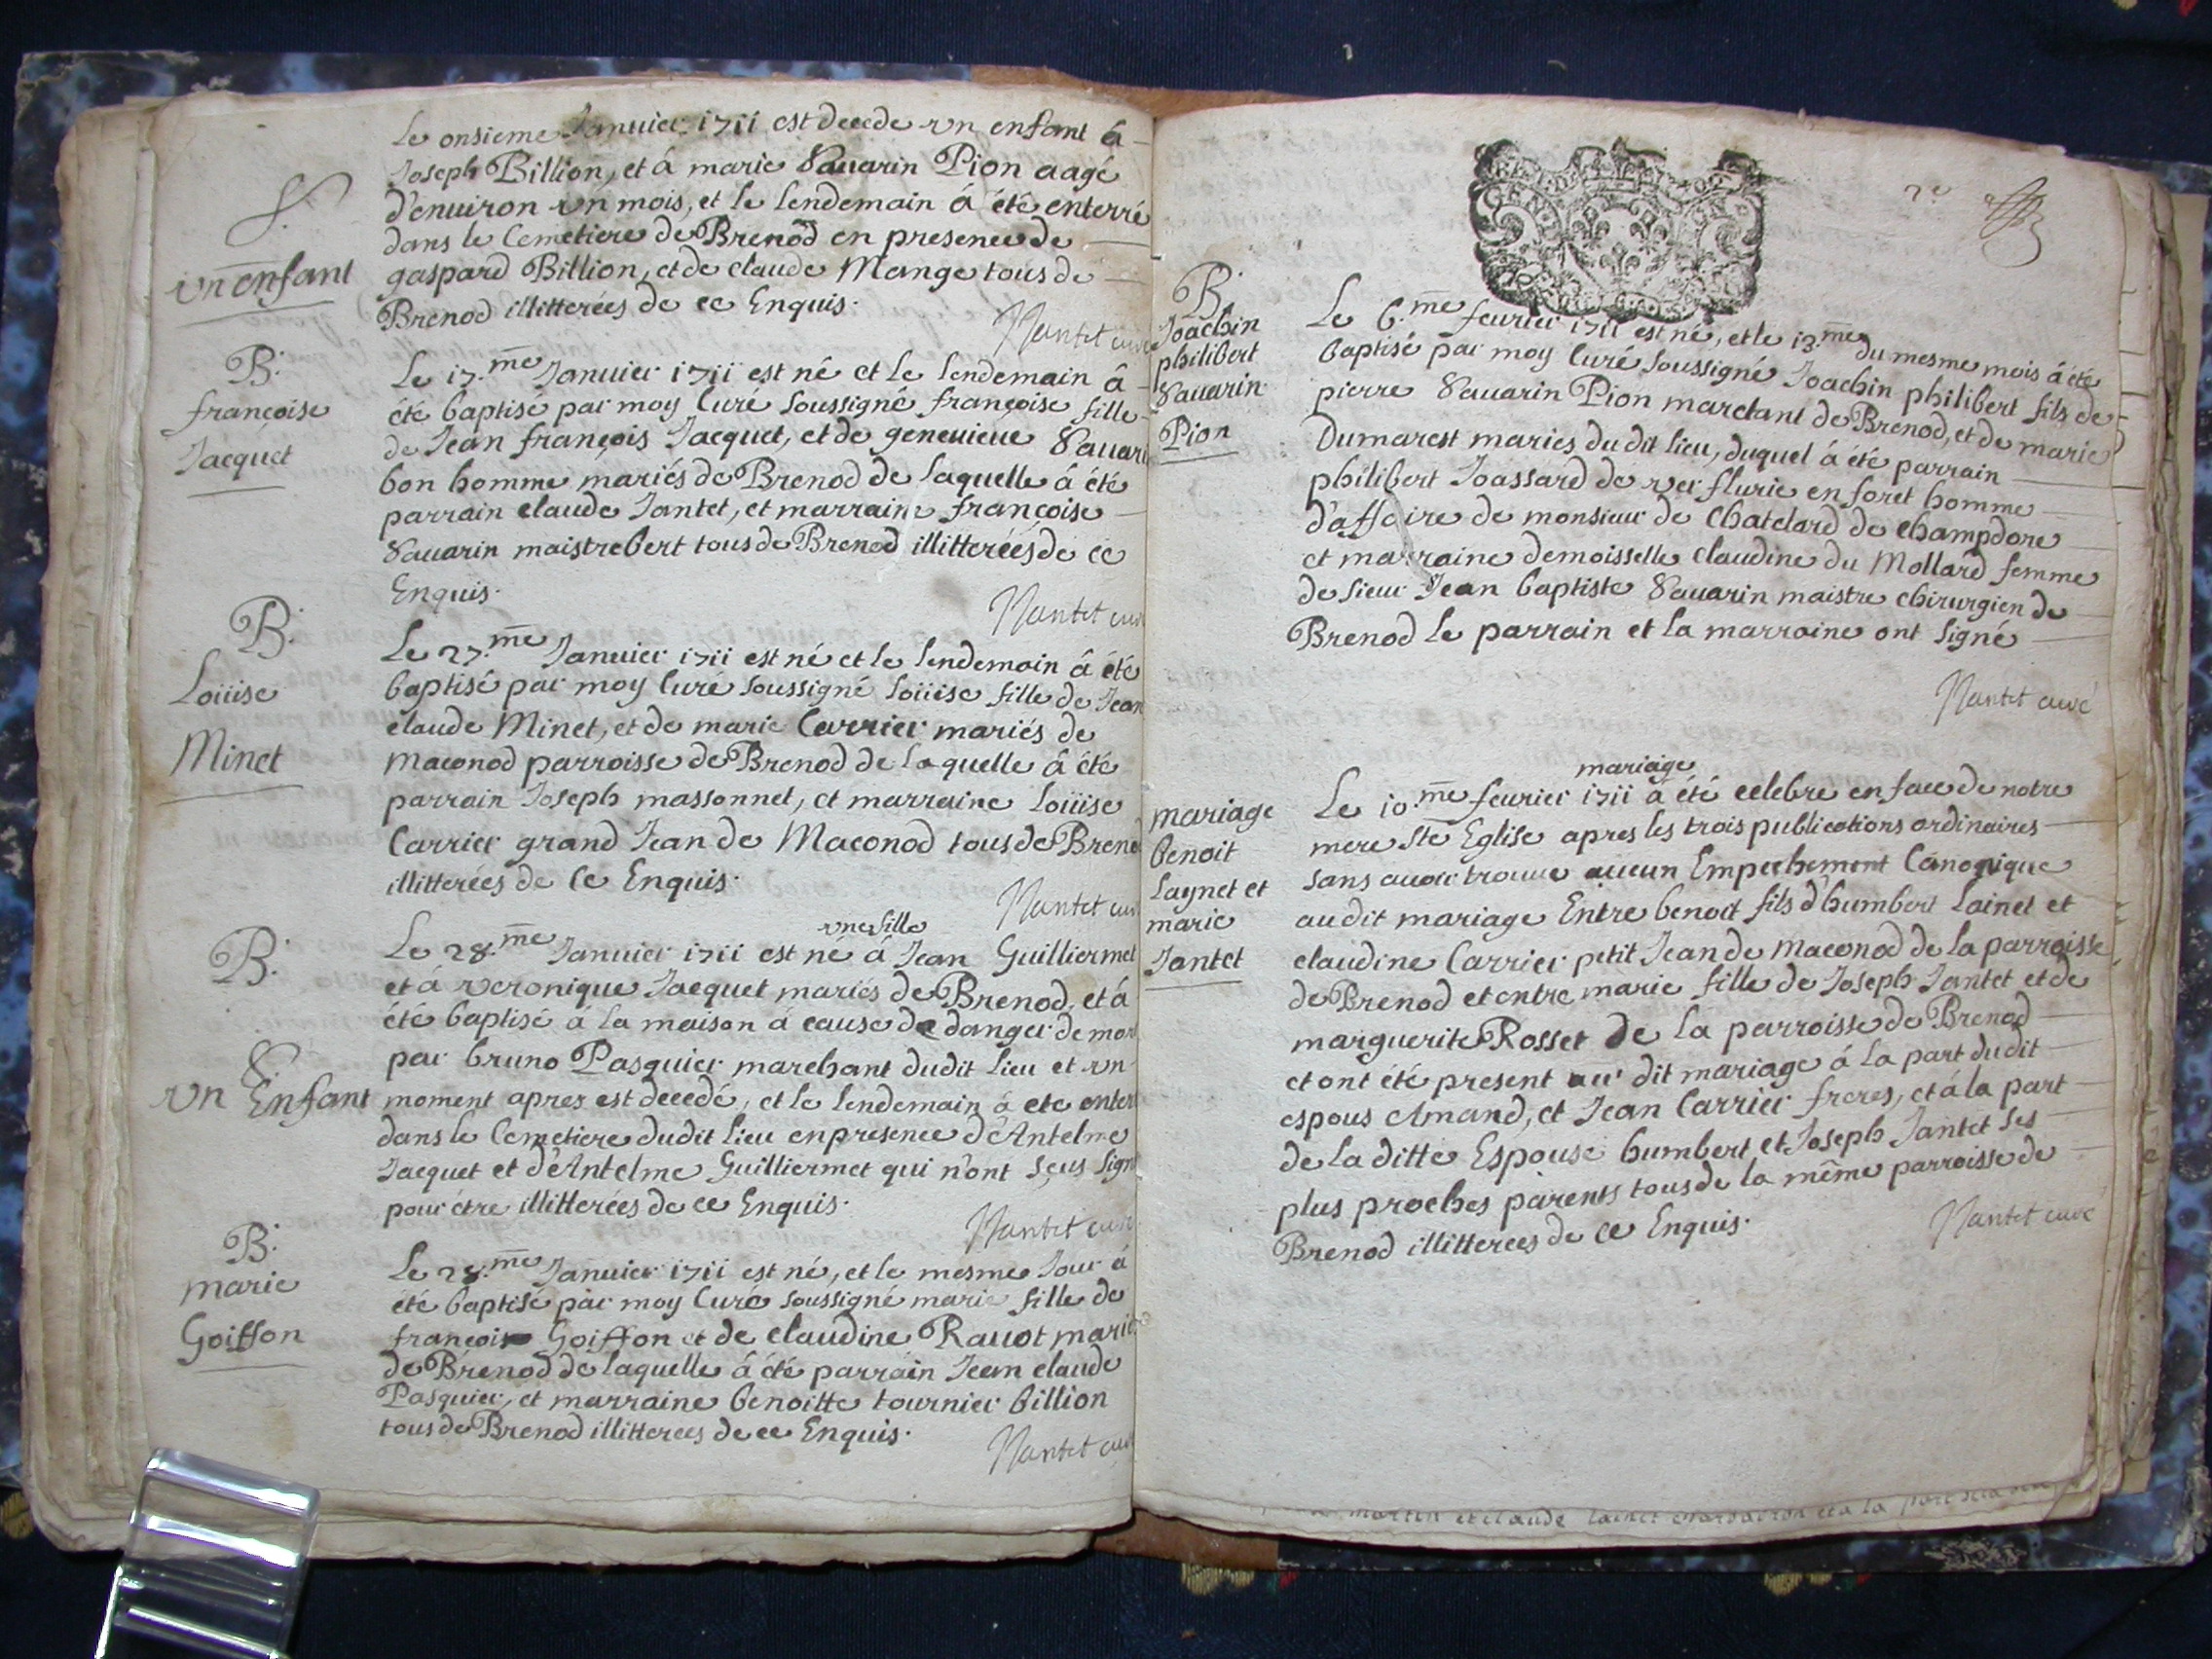 Le onsieme Januier 1711 est decede vn enfant â
Joseph Billion, et â marie Sauarin Pion aagé
d'enuiron vn mois, et le lendemain â été enterré
dans le Cemetiere de Brenod en presence de
gaspard Billion, et de claude Mange tous de
Brenod illitterées de ce Enquis.
Nantet curé
S.
vn enfant
B.
françoise
Jacquet
Le 17.me Januier 1711 est né et le lendemain â
été baptisé par moy Curé soussigné françoise fille
de Jean françois Jacquet, et de geneuieue Sauarin
bon homme mariés de Brenod de laquelle â été
parrain claude Jantet, et marraine françoise
Sauarin maistrebert tous de Brenod illitterées de ce
Enquis.
Nantet curé
B.
Loüise
Minet
Le 27.me Januier 1711 est né et le lendemain â été
baptisé par moy Curé soussigné loüise fille de Jean
claude Minet, et de marie Carrier mariés de
maconod parroisse de Brenod de laquelle â été
parrain Joseph massonnet, et marraine Loüise
Carrier grand Jean de Maconod tous de Brenod
illitterées de Ce Enquis.
Nantet curé
B.
S.
vn Enfant
vne fille
Le 28.me Januier 1711 est né â Jean Guilliermet
et â veronique Jacquet mariés de Brenod, et â
été baptisé â la maison â cause de danger de mort
par bruno Pasquier marchant dudit lieu et vn
moment apres est decedé, et le lendemain â ete enterré
dans le Cemetiere dudit lieu en presence d'Antelme
Jacquet et d'Antelme Guilliermet qui n'ont sçus signé
pour étre illitterées de ce Enquis.
Nantet curé
B.
marie
Goiffon
Le 28.me Januier 1711 est né, et le mesme Jour â
été baptisé par moy Curé soussigné marie fille de
françois Goiffon et de claudine Rauot mariés
de Brenod de laquelle â été parrain Jean claude
Pasquier, et marraine benoitte tournier billion
tous de Brenod illitterees de ce Enquis.
Nantet curé
2e
B.
Joachin
philibert
Sauarin
Pion
Le 6.me feurier 1711 est né, et le 13.me du mesme mois â été
baptisé par moy Curé soussigné Joachin philibert fils de
pierre Sauarin Pion marchant de Brenod, et de marie
Dumarest mariés du dit lieu, duquel â été parrain
philibert Joassard de ver flurie en foret homme
d'affaire de monsieur de Chatelard de champdore
et marraine demoisselle claudine du Mollard femme
de sieur Jean baptiste Sauarin maistre chirurgien de
Brenod le parrain et la marraine ont signé
Nantet curé
mariage
benoit
Laynet et
marie
Jantet
mariage
Le 10.me feurier 1711 â été celebre en face de notre
mere Ste Eglise apres les trois publications ordinaires
sans auoir trouue aucun Empechement Canonique
au dit mariage Entre benoit fils d'humbert Lainet et
claudine Carrier petit Jean de Maconod de la parroisse
de Brenod et entre marie fille de Joseph Jantet et de
marguerite Rosset de la parroisse de Brenod
et ont été present au dit mariage â la part dudit
espous Amand, et Jean Carrier freres, et â la part
de la ditte Espouse humbert et Joseph Jantet ses
plus proches parents tous de la même parroisse de
Brenod illitterees de ce Enquis.
Nantet curé
martin et claude lainet et a la part